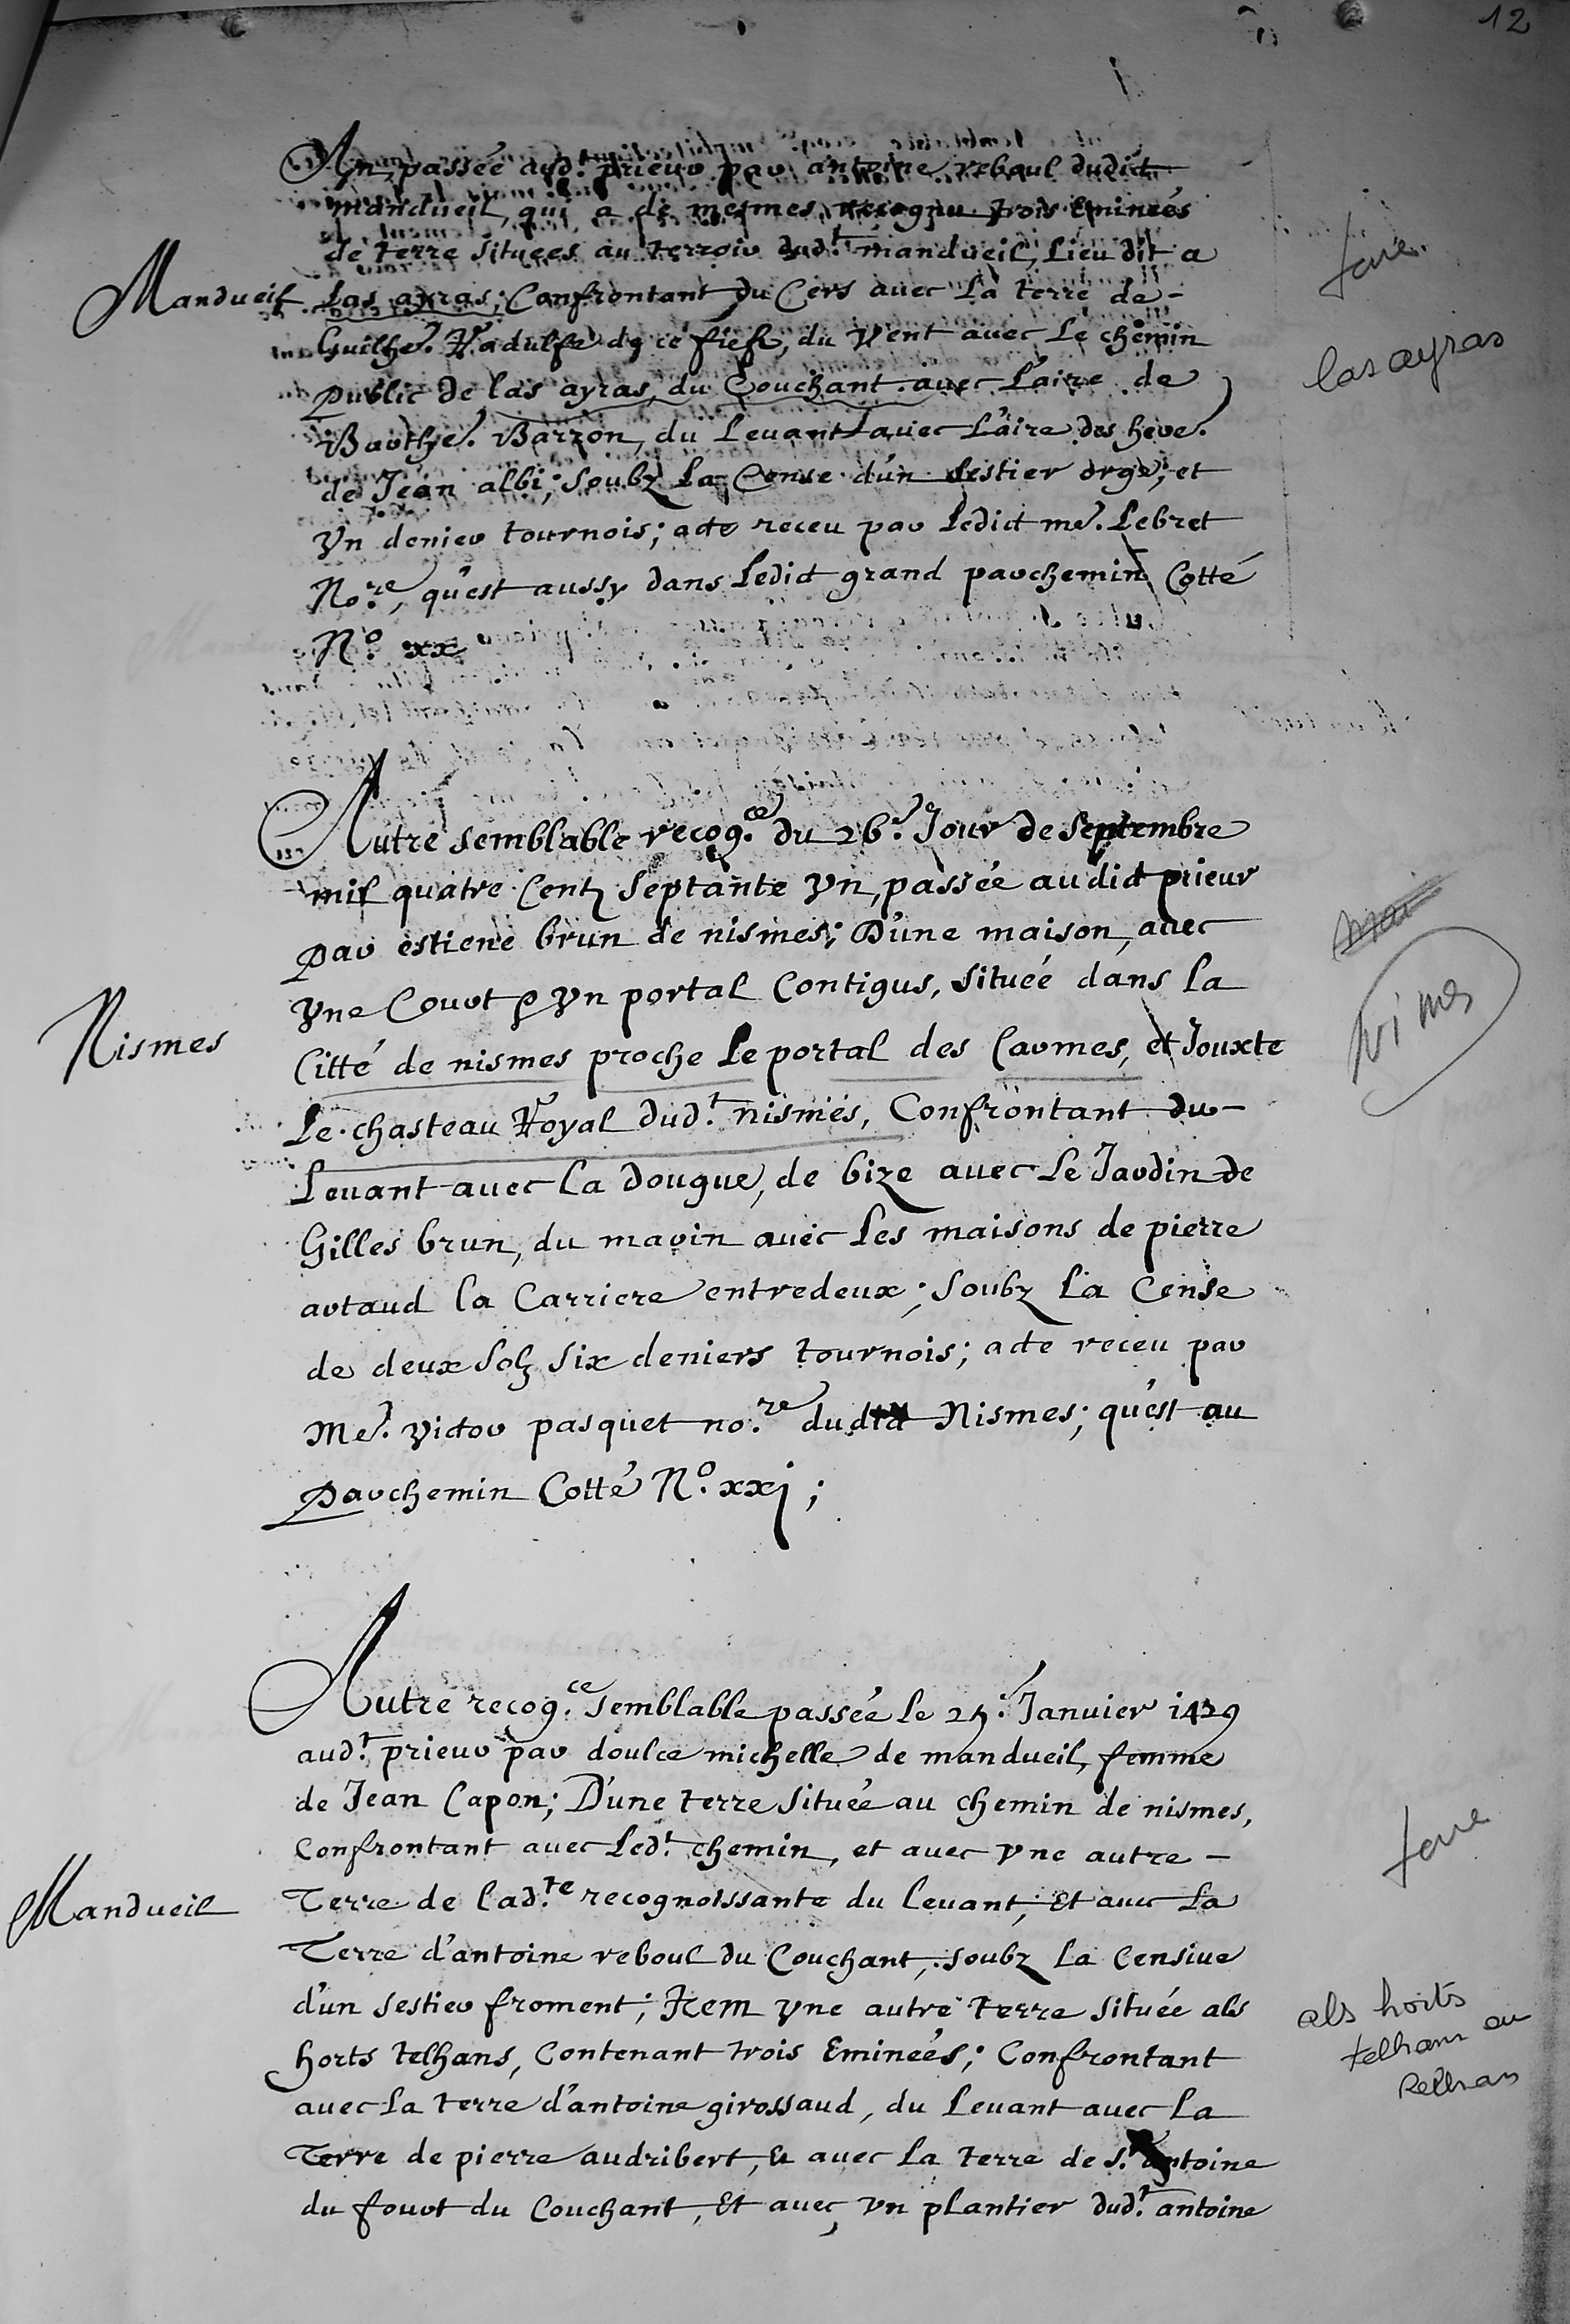 12
Un, passée aud.t prieur par antoine reboul dudict
mandueil, qui a de mesmes recognu trois Eminées
de terre situees au terroir dud.t mandueil, Lieu dit a
Mandueil
Las ayras; Confrontant du Cers avec La terre de
Guilhe. Radulfe de ce fief, du Vent avec Le chemin
public de las ayras, du Couchant avec L'aire de
Barthe. Barzon, du Levant avec L'aire des here.
de Jean albi; soubz La Cense d'un sestier orge; et
Vn denier tournois; acte receu par Ledict me. Lebret
No.re, qu'est aussy dans Ledict grand parchemin Cotté
N.o xx
terre
las ayras
Autre semblable recog.ce du 26.e Jour de Septembre
mil quatre Centz septante Vn, passée audict prieur
par estiene brun de nismes; D'une maison, avec
Vne Court & Vn portal Contigus, située dans la
Citté de nismes proche Le portal des Carmes, et Jouxte
Le chasteau Royal dud.t nismes, Confrontant du
Levant avec la dougue, de bize avec Le Jardin de
Gilles brun, du marin avec Les maisons de pierre
artaud la Carriere entredeux; soubz La Cense
de deux solz six deniers tournois; acte receu par
Me. Victor pasquet no.re dudict Nismes; qu'est au
parchemin Cotté N.o xxj;
Nismes
nimes
Autre recog.ce semblable passée Le 25.e Janvier 1429
aud.t prieur par doulce michelle de mandueil, femme
de Jean Capon; D'une terre située au chemin de nismes,
Confrontant avec Led.t chemin, et avec Vne autre
Terre de lad.te recognoissante du levant; Et avec La
Mandueil
Terre d'antoine reboul du Couchant, soubz La Censive
d'un sestier froment; Item Vne autre Terre située als
horts telhans, Contenant trois Eminées; Confrontant
avec La terre d'antoine girossaud, du Levant avec La
Terre de pierre audribert, & avec La terre de s.t antoine
du fourt du Couchant, Et avec Vn plantier dud.t antoine
terre
als horts
telhans ou
Relhans